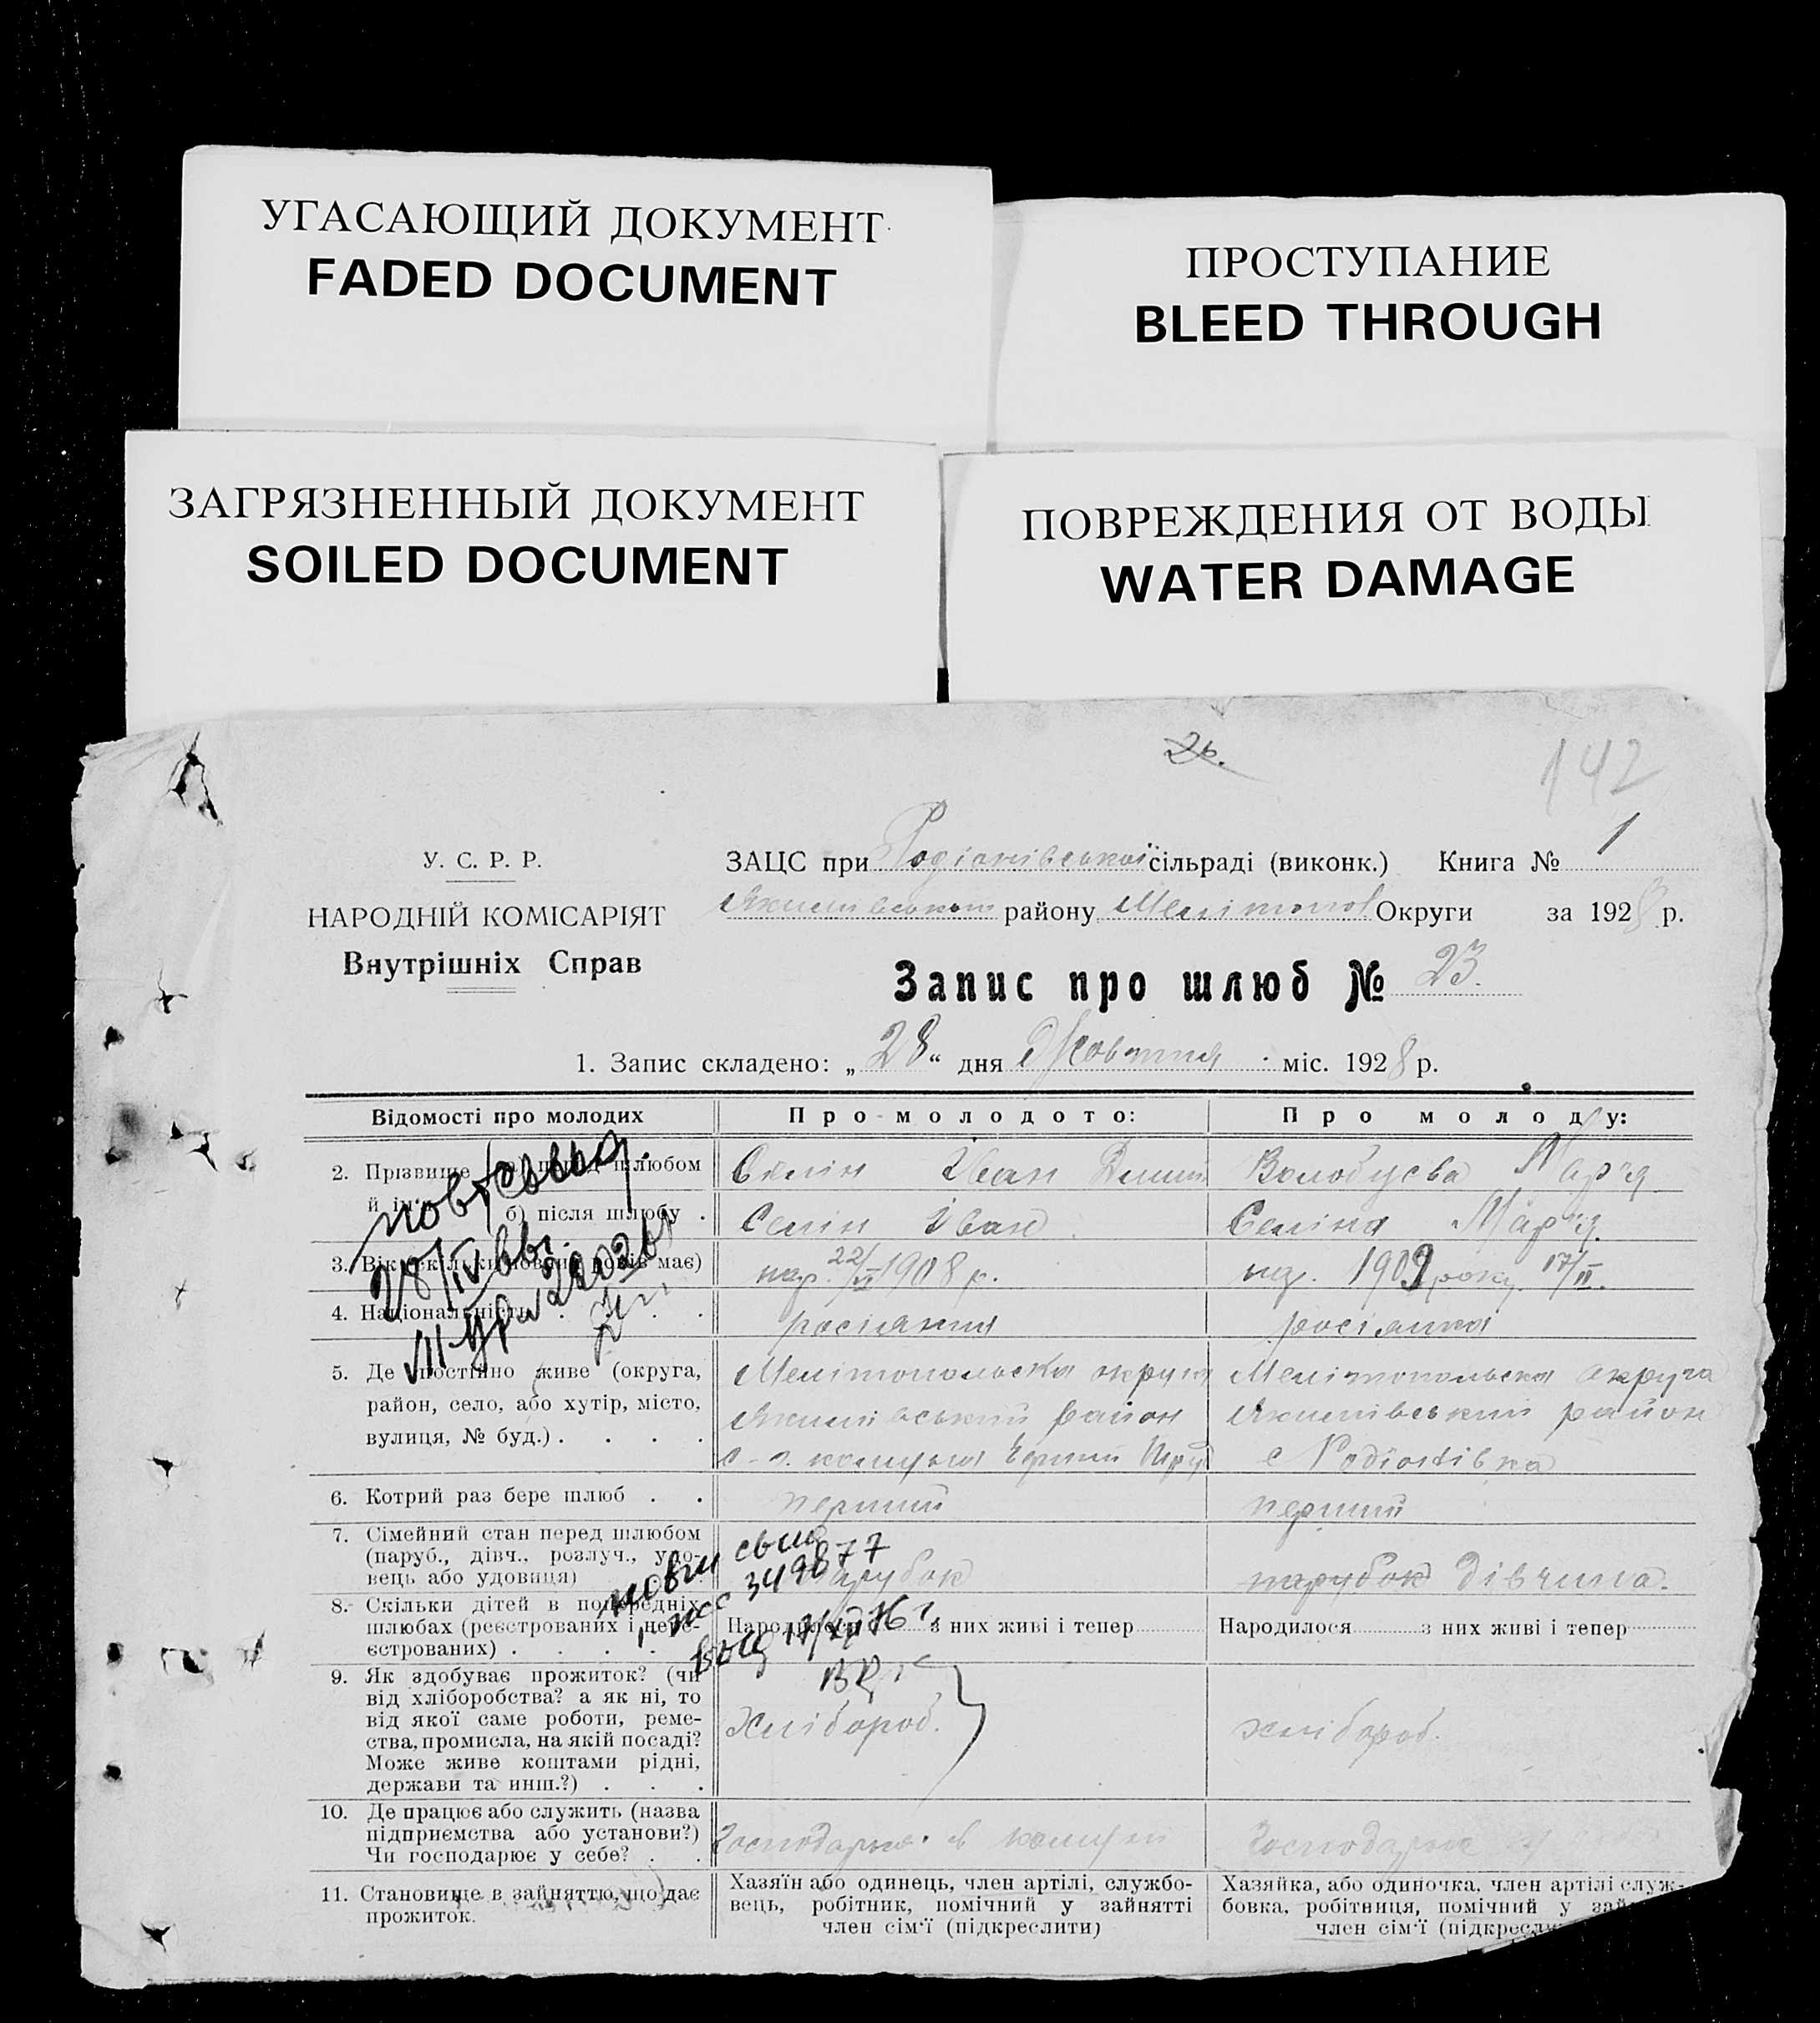 УГАСАЮЩИЙ ДОКУМЕНТ
FADED DOCUMENT
ПРОСТУПАНИЕ
BLEED THROUGH
ЗАГРЯЗНЕННЫЙ ДОКУМЕНТ
SOILED DOCUMENT
ПОВРЕЖДЕНИЯ ОТ ВОДЫ
WATER DAMAGE
26.
142
У. С. Р. Р.
НАРОДНІЙ КОМІСАРІЯТ
Внутрішніх Справ
ЗАЦС при Родіонівської сільраді (виконк.) Книга № 1
району Мелітопол Округи за 1928 р.
Запис про шлюб № 23.
1. Запис складено: „28“ дня Жовтня міс. 1928 р.
Відомості про молодих
Про молодого:
Про молоду:
2. Прізвище а) перед шлюбом
Селін Іван
Волобуєва Мар'я
й ім'я б) після шлюбу .
Селін Іван
Селіна Мар'я
3. Вік (скільки повних років має)
нар. 22/ 1908 р.
1909 року 17/II.
4. Національність . . . .
росіянин
росіянка
5. Де постійно живе (округа, район, село, або хутір, місто, вулиця, № буд.) . . . .
Мелітопольска округа
Якимівський район
с-г. комуна
Мелітопольска округа
Якимівський район
с Родіонівка
6. Котрий раз бере шлюб . .
перший
перший
7. Сімейний стан перед шлюбом
(паруб., дівч., розлуч., удо-
вець або удовиця)
парубок
парубок дівчина.
8. Скільки дітей в попередніх
шлюбах (реєстрованих і нере-
єстрованих) . . . .
Народилося з них живі і тепер
Народилося з них живі і тепер
28/IV
349877
9. Як здобуває прожиток? (чи
від хліборобства? а як ні, то
від якої саме роботи, реме-
ства, промисла, на якій посаді?
Може живе коштами рідні,
держави та инш.?) . . .
Хлібороб.
хлібороб.
10. Де працює або служить (назва
підприємства або установи?)
Чи господарює у себе? . .
Господарює в комуні
Господарює
11. Становище в зайняттю, що дає
прожиток.
Хазяїн або одинець, член артілі, службо-
вець, робітник, помічний у зайнятті
член сім'ї (підкреслити)
Хазяйка, або одиночка, член артілі служ-
бовка, робітниця, помічний у
член сім'ї